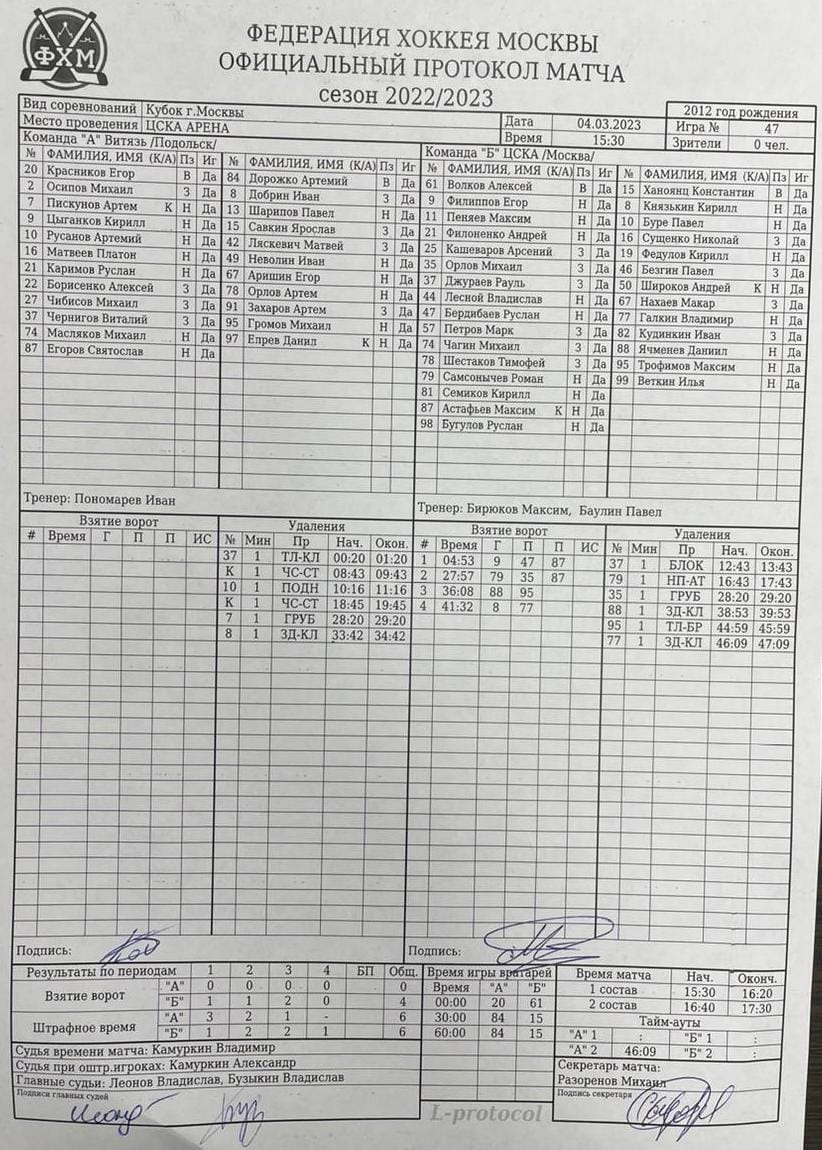 ФХМ
ФЕДЕРАЦИЯ ХОККЕЯ МОСКВЫ
ОФИЦИАЛЬНЫЙ ПРОТОКОЛ МАТЧА
сезон 2022/2023
2012 год рождения
Вид соревнований Кубок г.Москвы Дата 04.03.2023 Игра № 47
Место проведения ЦСКА АРЕНА Время 15:30 Зрители 0 чел.
Команда "А" Витязь /Подольск/
№ ФАМИЛИЯ, ИМЯ (К/А) Пз Иг № ФАМИЛИЯ, ИМЯ (К/А) Пз Иг
20 Красников Егор В Да 84 Дорожко Артемий В Да
2 Осипов Михаил З Да 8 Добрин Иван З Да
7 Пискунов Артем К Н Да 13 Шарипов Павел Н Да
9 Цыганков Кирилл Н Да 15 Савкин Ярослав З Да
10 Русанов Артемий Н Да 42 Ляскевич Матвей З Да
16 Матвеев Платон Н Да 49 Неволин Иван Н Да
21 Каримов Руслан Н Да 67 Аришин Егор Н Да
22 Борисенко Алексей З Да 78 Орлов Артем Н Да
27 Чибисов Михаил З Да 91 Захаров Артем З Да
37 Чернигов Виталий З Да 95 Громов Михаил Н Да
74 Масляков Михаил Н Да 97 Епрев Данил К Н Да
87 Егоров Святослав Н Да
Тренер: Пономарев Иван
Команда "Б" ЦСКА /Москва/
№ ФАМИЛИЯ, ИМЯ (К/А) Пз Иг № ФАМИЛИЯ, ИМЯ (К/А) Пз Иг
61 Волков Алексей В Да 15 Ханоянц Константин В Да
9 Филиппов Егор Н Да 8 Князькин Кирилл Н Да
11 Пеняев Максим Н Да 10 Буре Павел Н Да
21 Филоненко Андрей Н Да 16 Сущенко Николай З Да
25 Кашеваров Арсений З Да 19 Федулов Кирилл Н Да
35 Орлов Михаил З Да 46 Безгин Павел З Да
37 Джураев Рауль З Да 50 Широков Андрей К Н Да
44 Лесной Владислав Н Да 67 Нахаев Макар З Да
47 Бердибаев Руслан Н Да 77 Галкин Владимир Н Да
57 Петров Марк З Да 82 Кудинкин Иван З Да
74 Чагин Михаил З Да 88 Ячменев Даниил Н Да
78 Шестаков Тимофей З Да 95 Трофимов Максим Н Да
79 Самсонычев Роман Н Да 99 Веткин Илья Н Да
81 Семиков Кирилл Н Да
87 Астафьев Максим К Н Да
98 Бугулов Руслан Н Да
Тренер: Бирюков Максим, Баулин Павел
Взятие ворот Удаления
# Время Г П П ИС № Мин Пр Нач. Окон.
37 1 ТЛ-КЛ 00:20 01:20
К 1 ЧС-СТ 08:43 09:43
10 1 ПОДН 10:16 11:16
К 1 ЧС-СТ 18:45 19:45
7 1 ГРУБ 28:20 29:20
8 1 ЗД-КЛ 33:42 34:42
Взятие ворот Удаления
# Время Г П П ИС № Мин Пр Нач. Окон.
1 04:53 9 47 87 37 1 БЛОК 12:43 13:43
2 27:57 79 35 87 79 1 НП-АТ 16:43 17:43
3 36:08 88 95 35 1 ГРУБ 28:20 29:20
4 41:32 8 77 88 1 ЗД-КЛ 38:53 39:53
95 1 ТЛ-БР 44:59 45:59
77 1 ЗД-КЛ 46:09 47:09
Подпись: Подпись:
Результаты по периодам 1 2 3 4 БП Общ.
Взятие ворот "А" 0 0 0 0 0
"Б" 1 1 2 0 4
Штрафное время "А" 3 2 1 - 6
"Б" 1 2 2 1 6
Судья времени матча: Камуркин Владимир
Судья при оштр.игроках: Камуркин Александр
Главные судьи: Леонов Владислав, Бузыкин Владислав
Подписи главных судей
Время игры вратарей
Время "А" "Б"
00:00 20 61
30:00 84 15
60:00 84 15
L-protocol
Время матча Нач. Оконч.
1 состав 15:30 16:20
2 состав 16:40 17:30
Тайм-ауты
"А" 1 : "Б" 1 :
"А" 2 46:09 "Б" 2 :
Секретарь матча:
Разоренов Михаил
Подпись секретаря